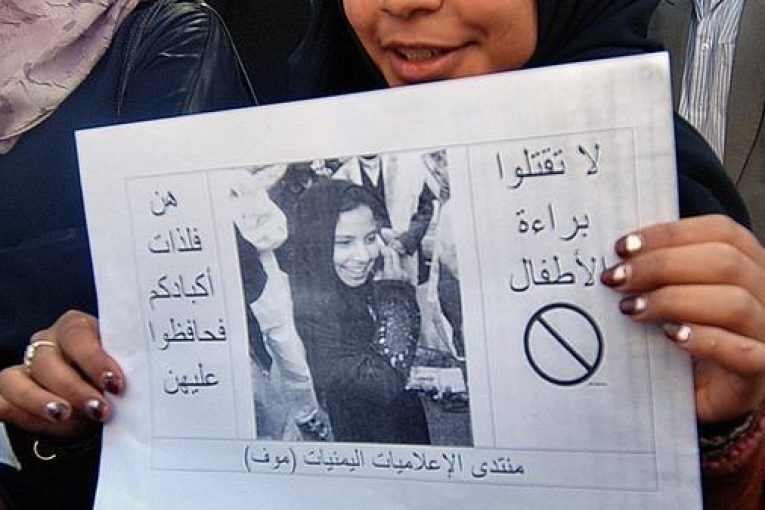 لا تقتلوا
براءة
الأطفال
هن
فلذات
أكبادكم
فحافظوا
عليهن
منتدى الإعلاميات اليمنيات (موف)